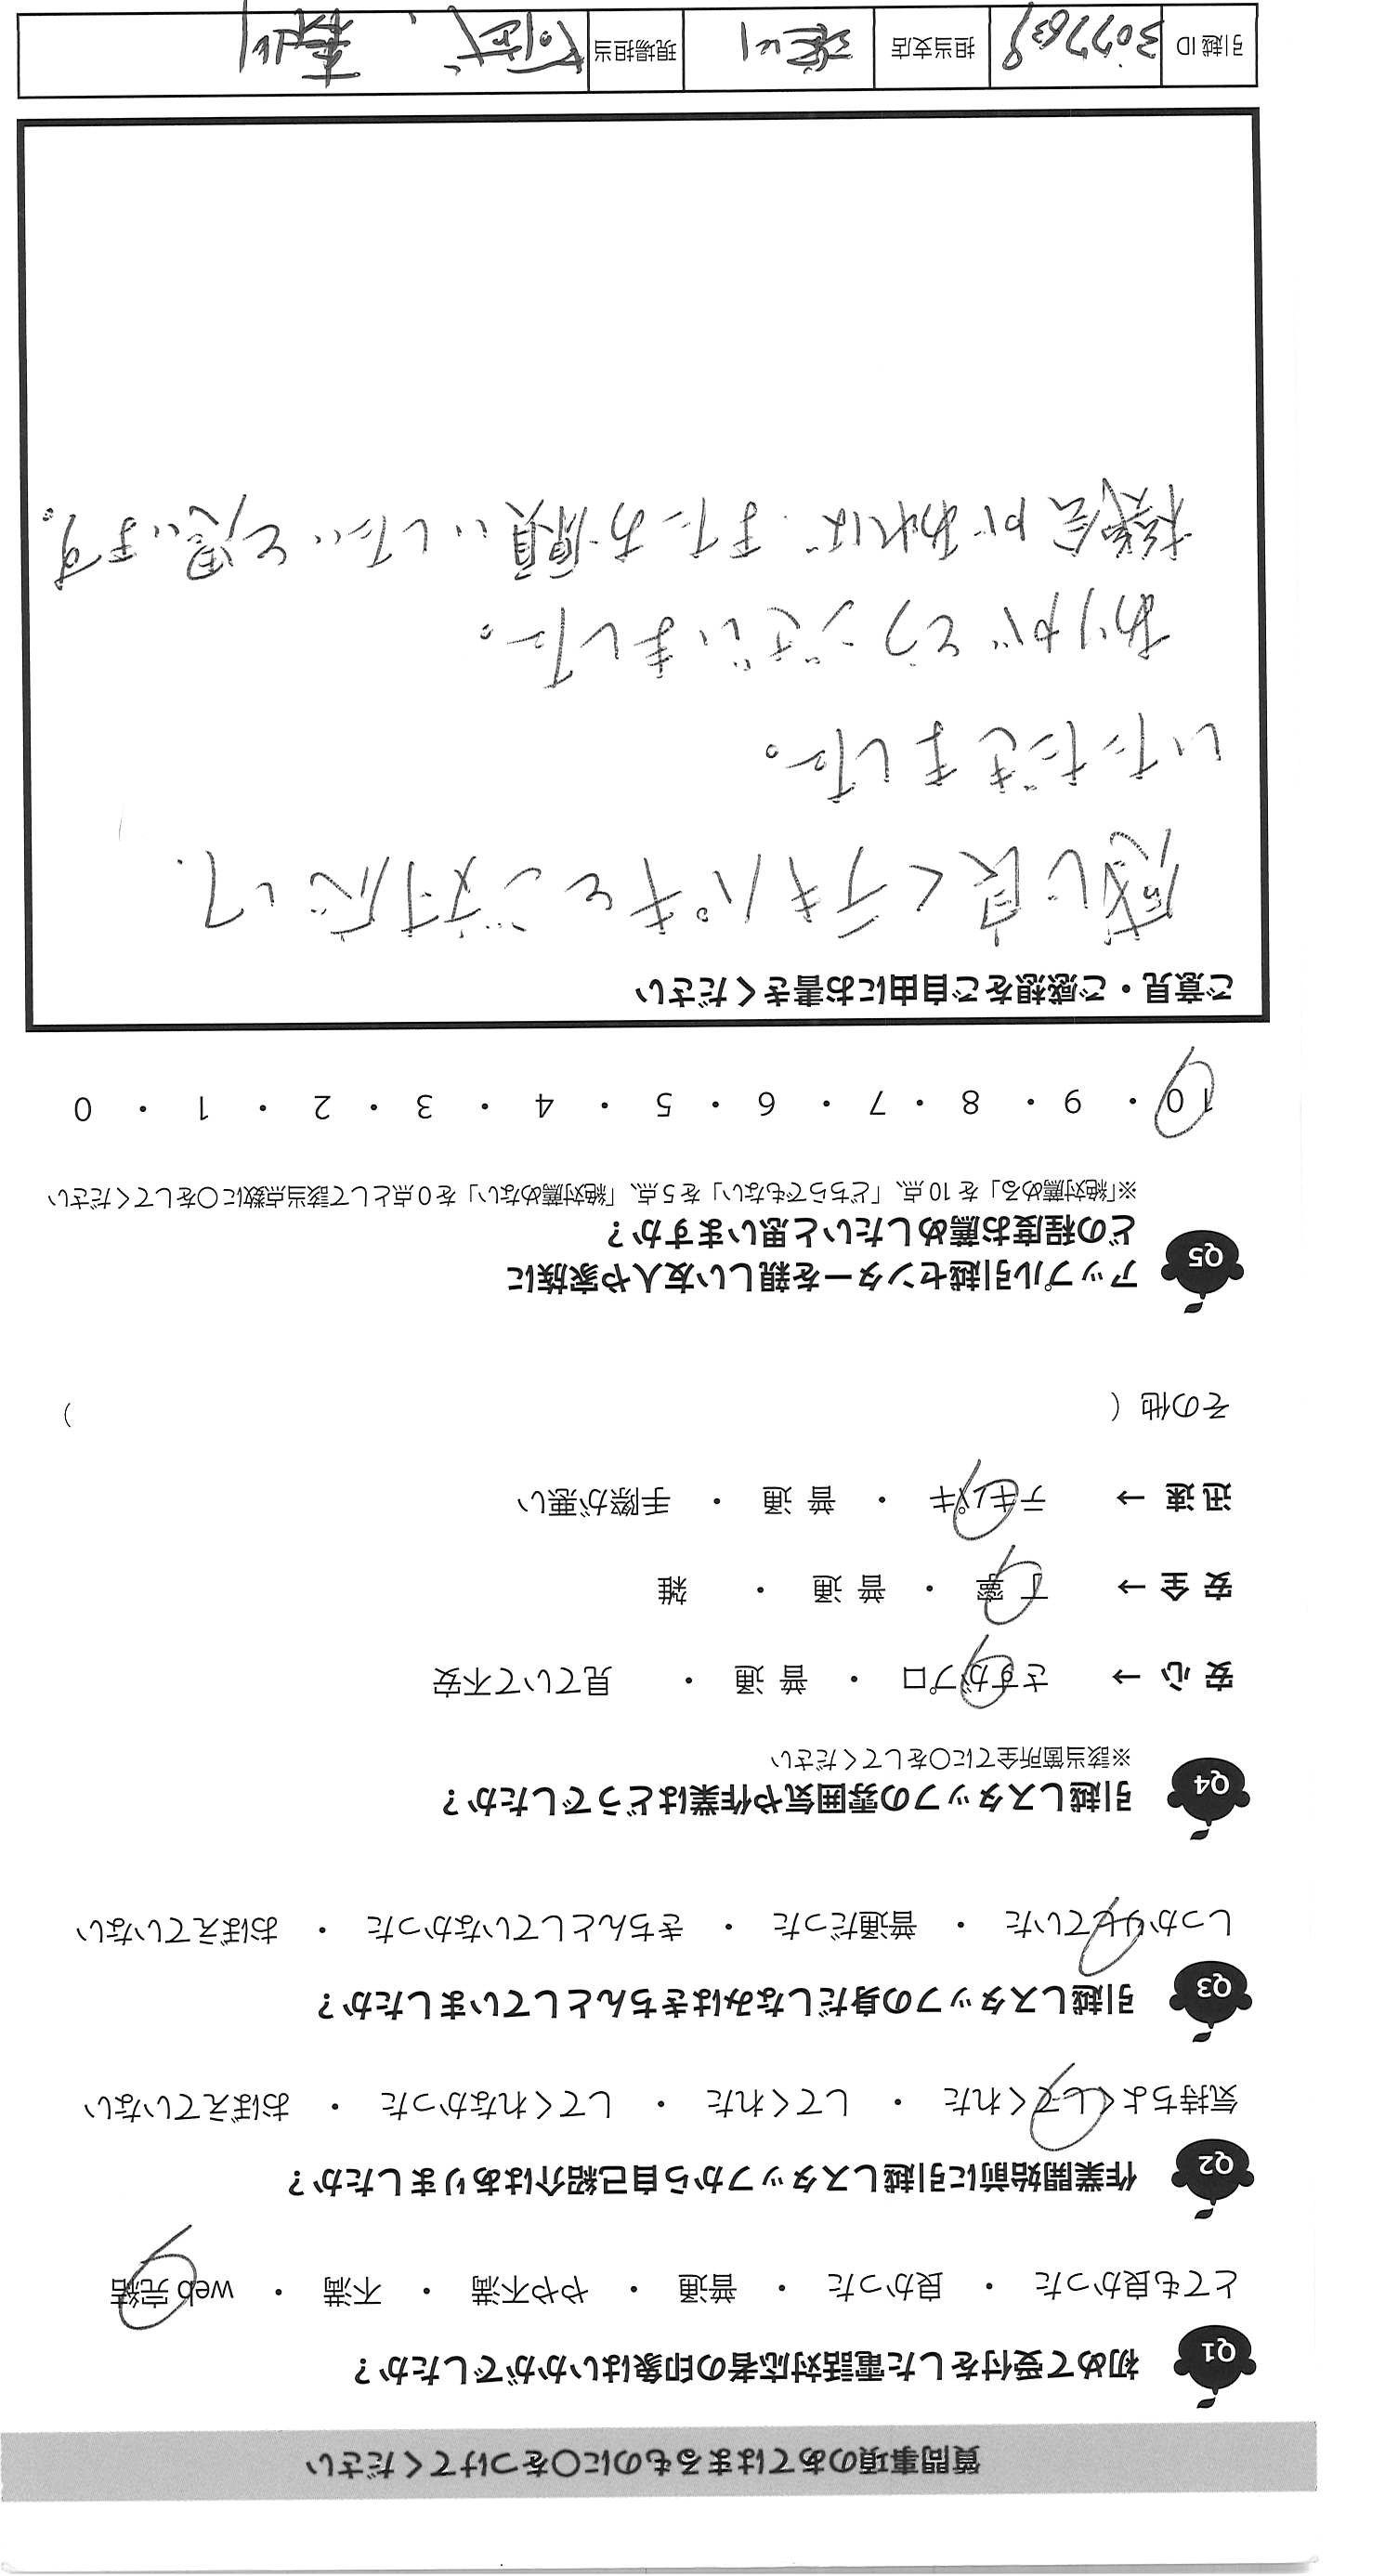 質問事項のあてはまるものに〇をつけてください
Q1 初めて受付をした電話対応者の印象はいかがでしたか？
とても良かった ・ 良かった ・ 普通 ・ やや不満 ・ 不満 ・ web 完結
Q2 作業開始前に引越しスタッフから自己紹介はありましたか？
気持ちよくしてくれた ・ してくれた ・ してくれなかった ・ おぼえていない
Q3 引越しスタッフの身だしなみはきちんとしていましたか？
しっかりしていた ・ 普通だった ・ きちんとしていなかった ・ おぼえていない
Q4 引越しスタッフの雰囲気や作業はどうでしたか？
※該当箇所全てに〇をしてください
安 心 → さすがプロ ・ 普 通 ・ 見ていて不安
安 全 → 丁 寧 ・ 普 通 ・ 雑
迅 速 → テキパキ ・ 普 通 ・ 手際が悪い
その他（ ）
Q5 アップル引越センターを親しい友人や家族に
どの程度お薦めしたいと思いますか？
※「絶対薦める」を 10 点、「どちらでもない」を 5 点、「絶対薦めない」を 0 点として該当点数に〇をしてください
10 ・ 9 ・ 8 ・ 7 ・ 6 ・ 5 ・ 4 ・ 3 ・ 2 ・ 1 ・ 0
ご意見・ご感想をご自由にお書きください
感じ良くテキパキとご対応して
いただきました。
ありがとうございました。
機会があれば またお願いしたいと思います。
引越 ID 担当支店 現場担当